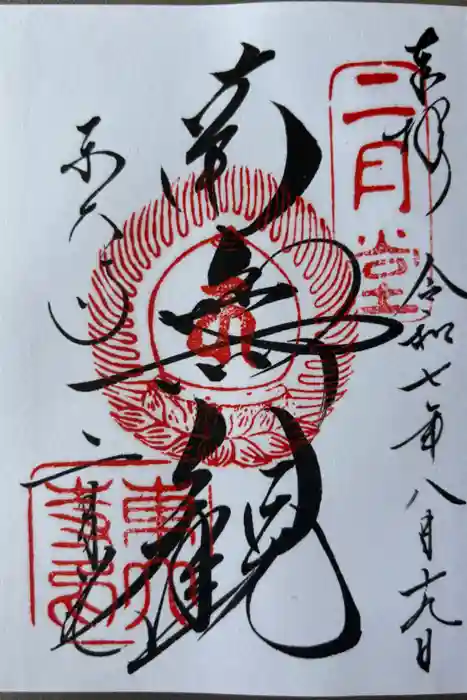 奉拝
二月堂
令和七年八月十九日
南無観
東大寺
二月堂